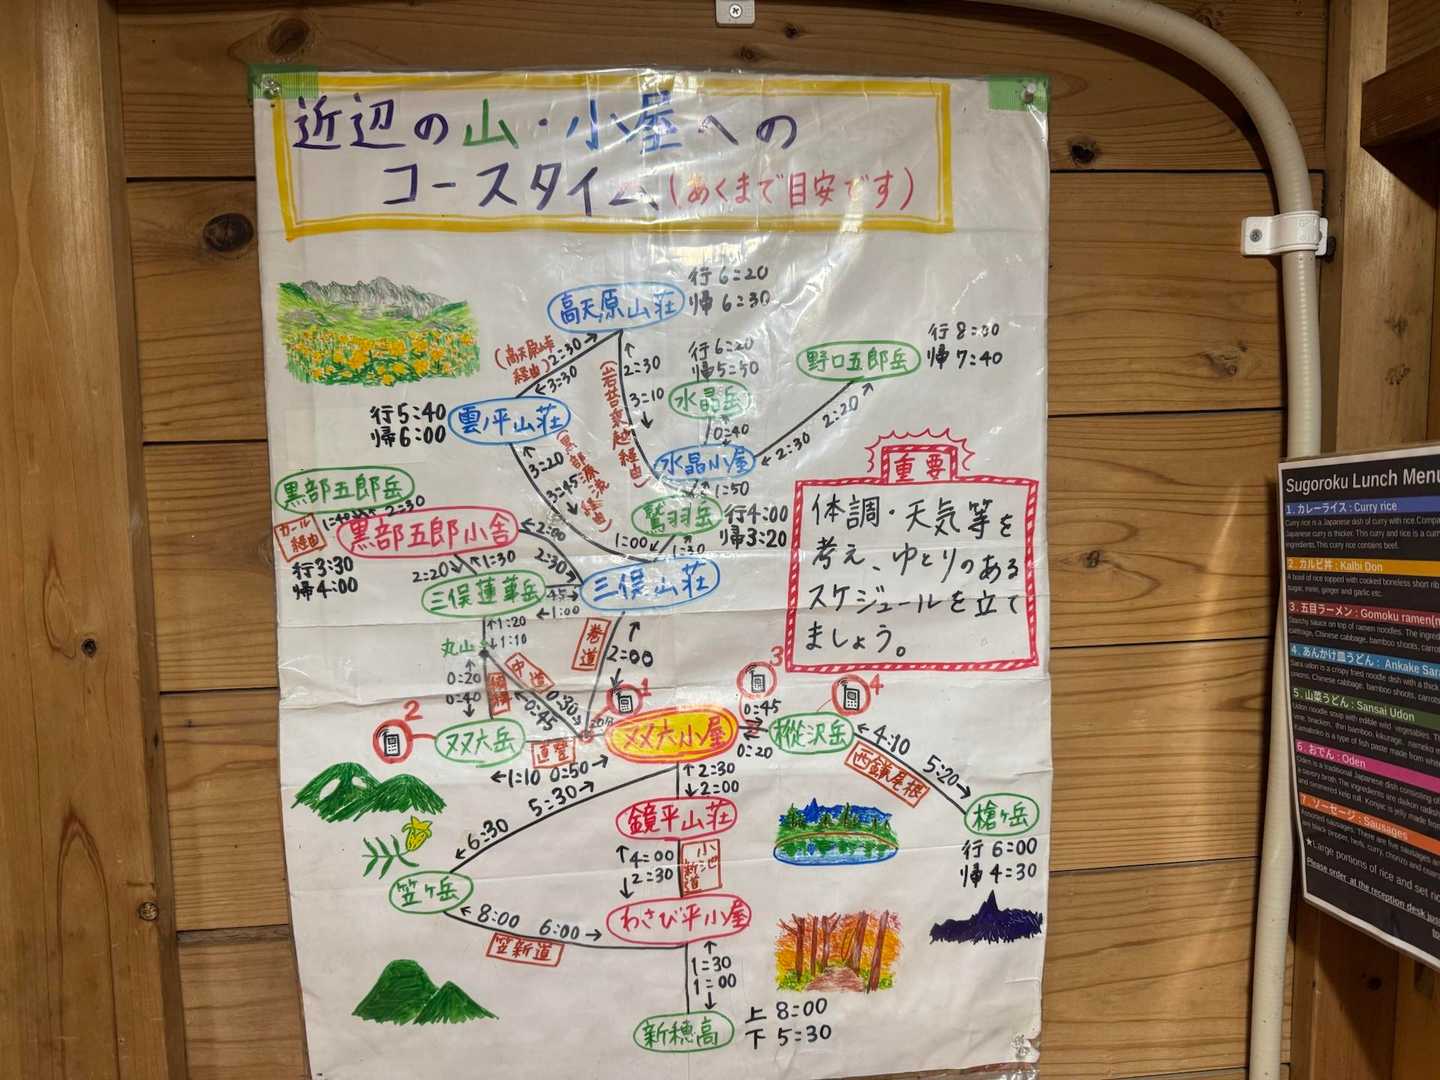 近辺の山・小屋への
コースタイム(あくまで目安です)
高天原山荘
行 6:20
帰 6:30
(高天原峠
経由)
2:30
3:30
(岩苔乗越経由)
2:30
3:10
行6:20
帰5:50
水晶岳
0:40
野口五郎岳
行8:00
帰 7:40
2:30
2:20
行5:40
帰6:00
雲ノ平山荘
3:20
3:45
(黒部源流経由)
水晶小屋
1:50
鷲羽岳
行4:00
帰3:20
1:00
1:30
黒部五郎岳
カール
経由
1:40
2:30
黒部五郎小舎
行3:30
帰4:00
2:00
2:30
2:20
1:30
三俣蓮華岳
45
1:00
三俣山荘
重要
体調・天気等を
考え、ゆとりのある
スケジュールを立て
ましょう。
1:20
1:10
丸山
0:20
0:40
稜線
中道
0:30
0:45
巻道
2:00
1
2
3
4
双六岳
直登
1:10 0:50
双六小屋
0:45
0:20
樅沢岳
4:10
5:20
西鎌尾根
槍ヶ岳
行 6:00
帰 4:30
5:30
6:30
2:30
2:00
鏡平山荘
4:00
2:30
小池新道
笠ヶ岳
8:00 6:00
笠新道
わさび平小屋
1:30
1:00
新穂高
上 8:00
下 5:30
Sugoroku Lunch Menu
1. カレーライス : Curry rice
2. カルビ丼 : Kalbi Don
3. 五目ラーメン : Gomoku ramen
4. あんかけ皿うどん : Ankake Sar
5. 山菜うどん : Sansai Udon
6. おでん : Oden
7. ソーセージ : Sausages
★Large portions of rice and set
Please order at the reception desk